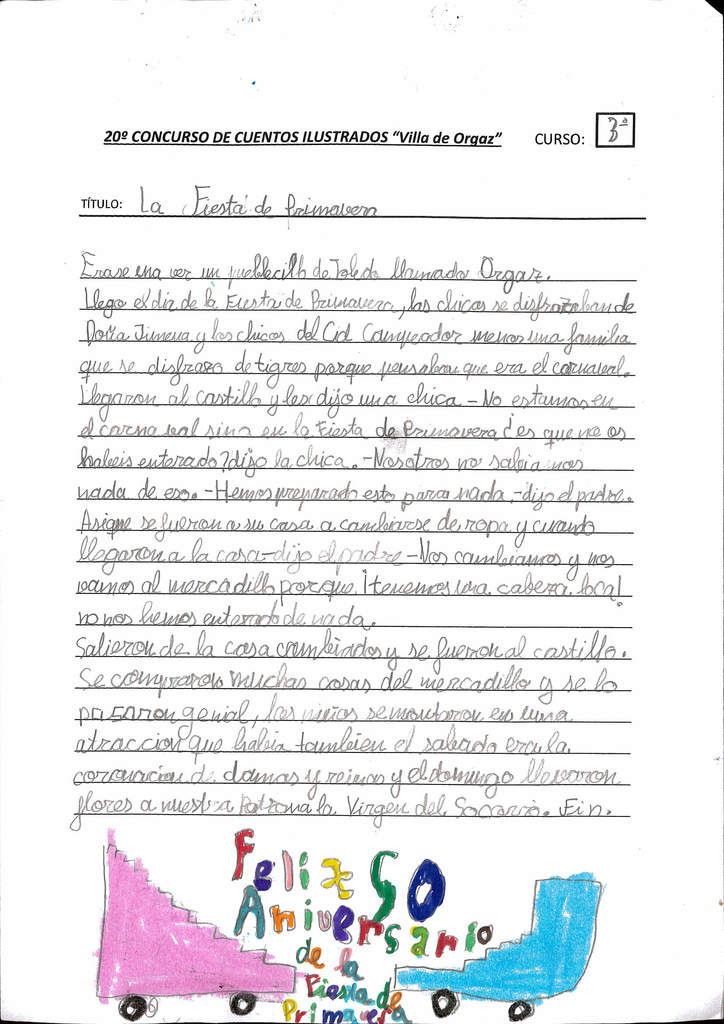 20º CONCURSO DE CUENTOS ILUSTRADOS “Villa de Orgaz” CURSO: 3ª
TÍTULO: La Fiesta de Primavera
Erase una vez un pueblecillo de Toledo llamado Orgaz.
Llego el dia de la Fiesta de Primavera, las chicas se disfrazaban de
Doña Jimena y los chicos del Cid Campeador menos una familia
que se disfrazo de tigres porque pensaban que era el carnaval.
Llegaron al castillo y les dijo una chica - No estamos en
el carnaval sino en la Fiesta de Primavera ¿es que no os
habeis enterado? dijo la chica. - Nosotros no sabiamos
nada de eso. - Hemos preparado esto para nada, - dijo el padre.
Asique se fueron a su casa a cambiarse de ropa y cuando
llegaron a la casa - dijo el padre - Nos cambiamos y nos
vamos al mercadillo porque ¡tenemos una cabeza loca!
no nos hemos enterado de nada.
Salieron de la casa cambiados y se fueron al castillo.
Se compraron muchas cosas del mercadillo y se lo
pasaron genial, los niños se montaron en una
atraccion que habia tambien el sabado era la
coronacion de damas y reinas y el domingo llevaron
flores a nuestra Patrona la Virgen del Socorro. Fin.
Feliz 50
Aniversario
de la
Fiesta de
Primavera